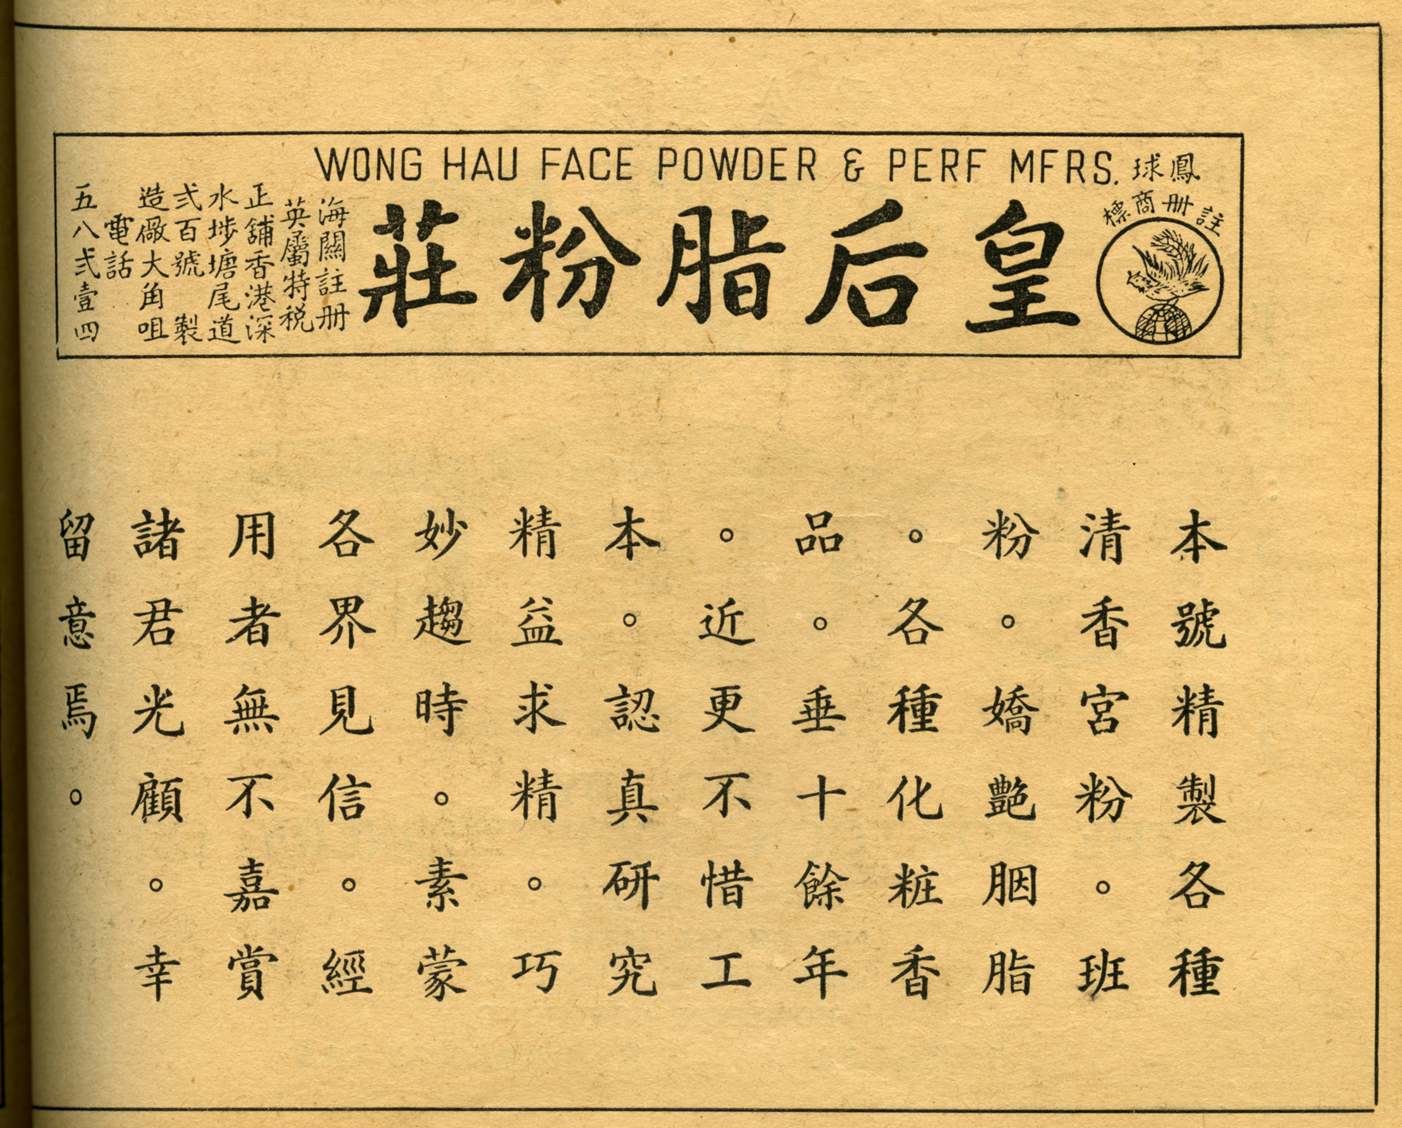 WONG HAU FACE POWDER & PERF MFRS.
鳳球
註册商標
皇后脂粉莊
海關註册
英屬特税
正舖香港深
水埗塘尾道
弍百號 製
造廠大角咀
電話
五八弍壹四
本號精製各種
清香宮粉。班
粉。嬌艷胭脂
。各種化粧香
品。垂十餘年
。近更不惜工
本。認真研究
精益求精。巧
妙趨時。素蒙
各界見信。經
用者無不嘉賞
諸君光顧。幸
留意焉。